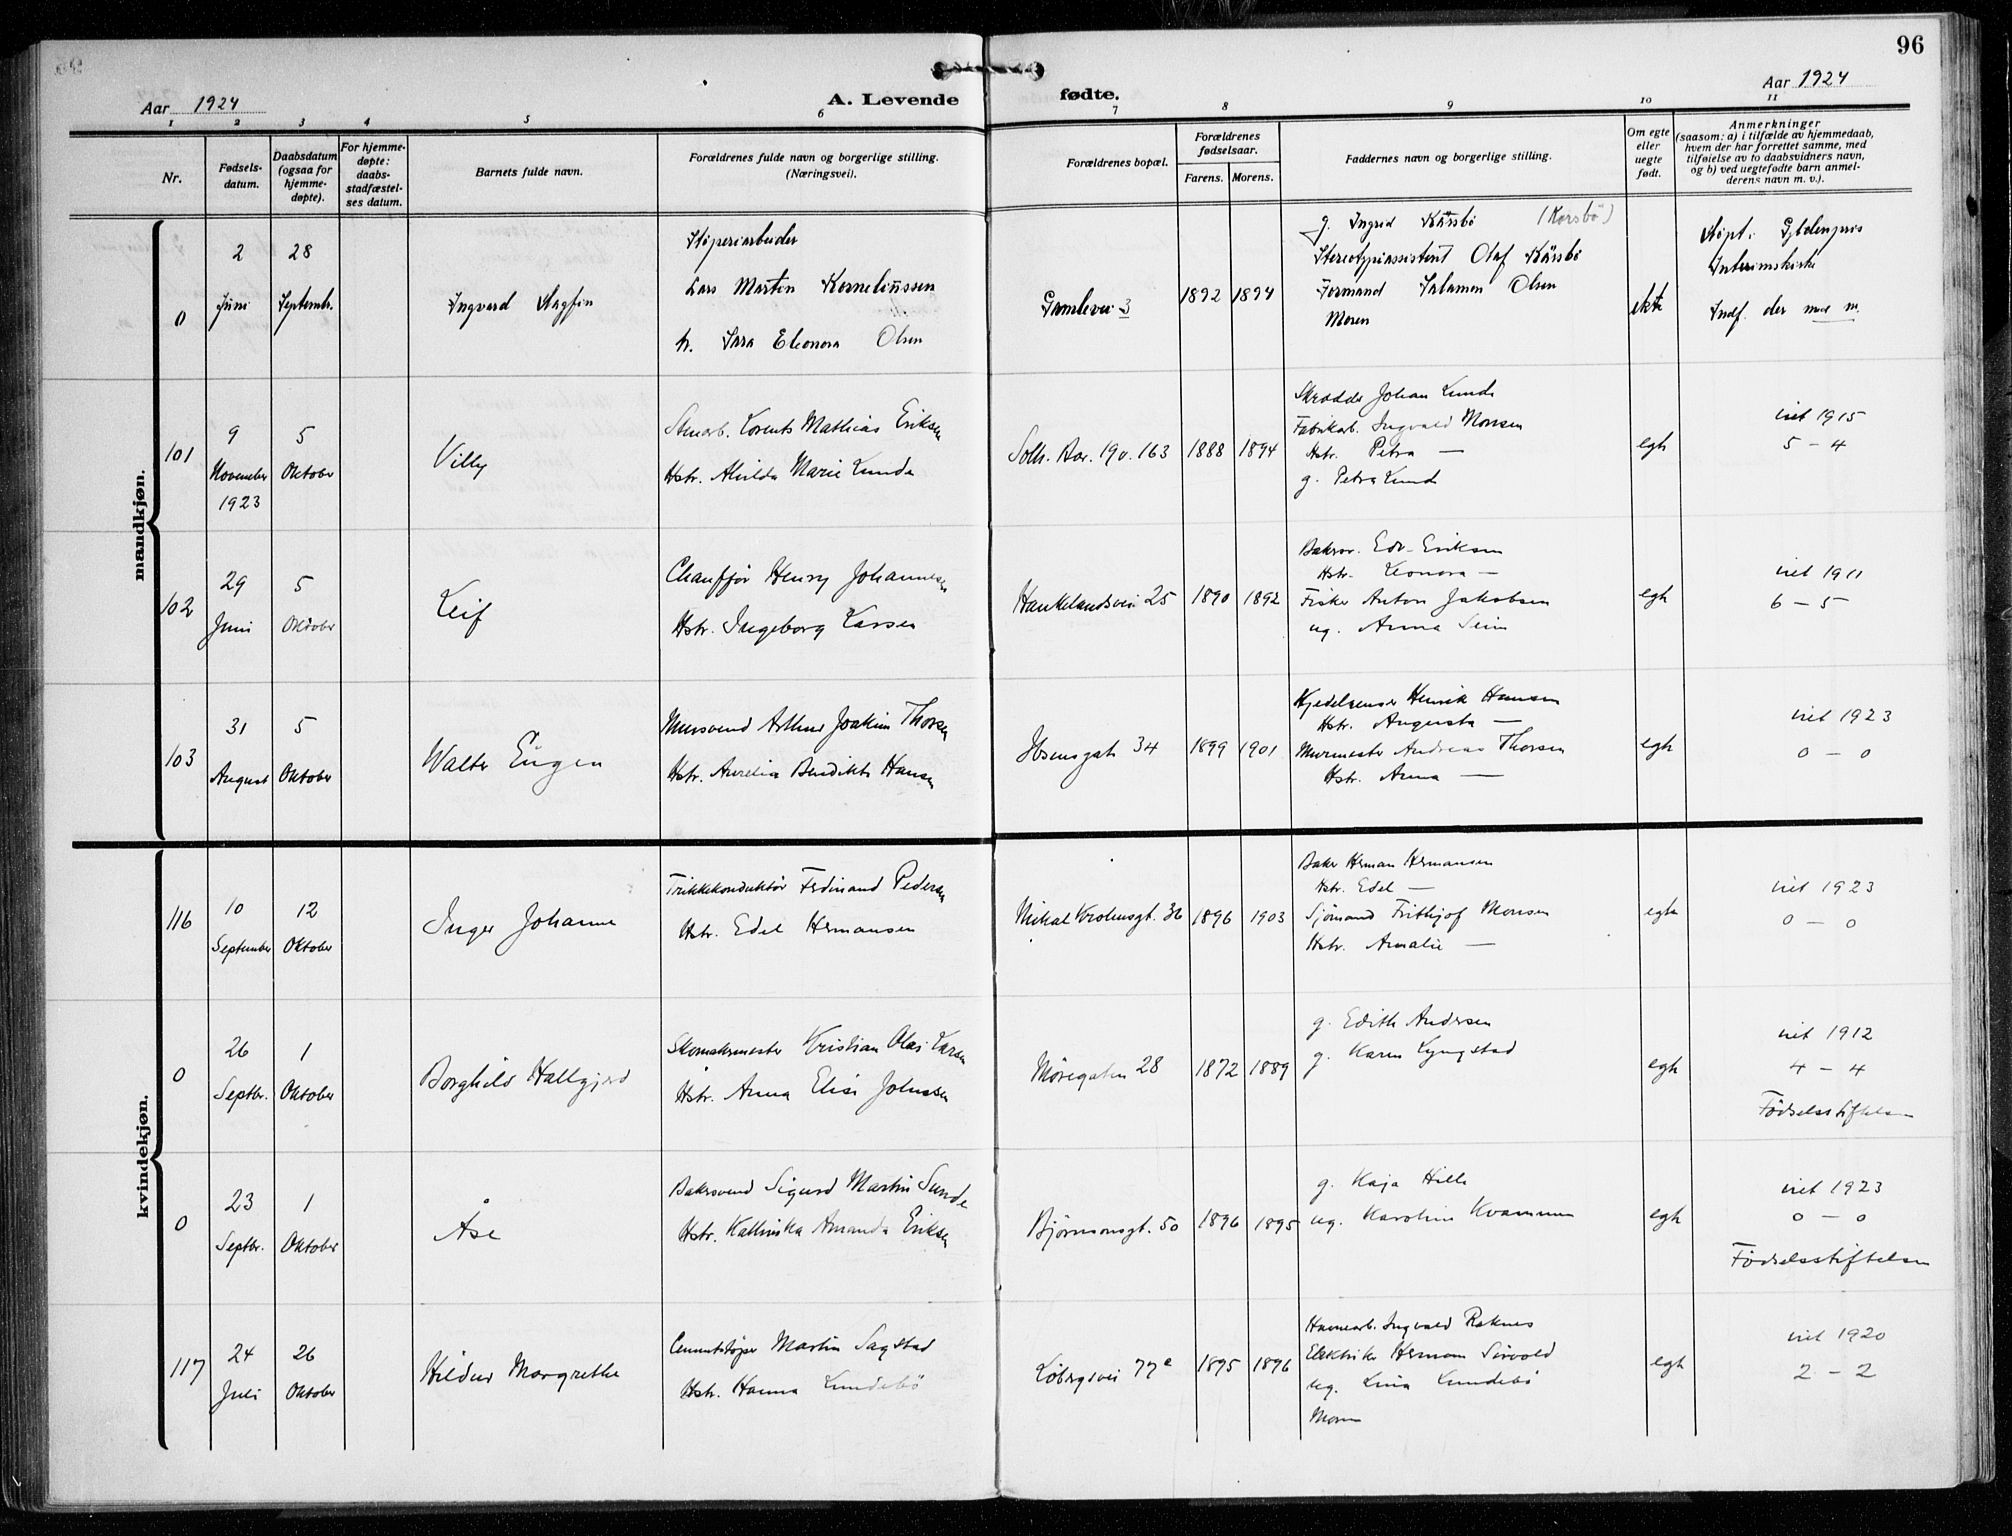 96
Aar 1924
A. Levende fødte.
Aar 1924
1 2 3 4 5 6 7 8 9 10 11
Nr.
Fødsels-
datum.
Daabsdatum
(ogsaa for
hjemme-
døpte).
For hjemme-
døpte:
daabs-
stadfæstel-
ses datum.
Barnets fulde navn.
Forældrenes fulde navn og borgerlige stilling.
(Næringsvei).
Forældrenes bopæl.
Forældrenes
fødselsaar.
Farens. Morens.
Faddernes navn og borgerlige stilling.
Om egte
eller
uegte
født.
Anmerkninger
(saasom: a) i tilfælde av hjemmedaab,
hvem der har forrettet samme, med
tilføielse av to daabsvidners navn,
og b) ved uegtefødte barn anmel-
derens navn m. v.).
mandkjøn.
0
2
Juni
28
Septembr.
Ingvard Magfin
Støperiarbeider
Lars Martin Kornelinssen
h. Sara Eleonora Olsen
Gamlevei 3
1892 1894
g. Ingrid Kårsbø (Korsbø)
Stereotypiassistent Olaf Kårsbø
Formand Salamon Olsen
Moren
ekte
Døpt i Gyldenpris
Interimskirke
Indf. der med nr.
101
9
November
1923
5
Oktober
Villy
Stenarb. Lorents Mathias Eriksen
Hstr. Alvilda Marie Lunde
Solh. Aar. 190. 163
1888 1894
Skrædder Johan Lunde
Fabrikarb. Ingvald Monsen
Hstr. Petra —
g. Petra Lund
egte
viet 1915
5 – 4
102
29
Juni
5
Oktober
Leif
Chauffjør Henry Johannesen
Hstr. Ingeborg Larsen
Haukelandsvei 25
1890 1892
Baksv. Edv. Eriksen
Hstr. Leonora —
Fisker Anton Jakobsen
ug. Anna Seim
egte
viet 1911
6 – 5
103
31
August
5
Oktober
Walter Eugen
Mursvend Arthur Joakim Thorsen
Hstr. Aurelia Benedikte Hansen
Ibsensgate 34
1899 1901
Kjedelrenser Henrik Hansen
Hstr. Augusta —
Murmester Andreas Thorsen
Hstr. Anna —
egte
viet 1923
0 – 0
kvindekjøn.
116
10
September
12
Oktober
Inger Johanne
Trikkekonduktør Ferdinand Pedersen
Hstr. Edel Hermansen
Mikal Krohnsgt. 36
1896 1903
Baker Herman Hermansen
Hstr. Edel —
Sjømand Frithjof Monsen
Hstr. Amalie —
egte
viet 1923
0 – 0
0
26
Septbr.
1
Oktober
Borghild Hallgjerd
Skomakermester Kristian Olai Larsen
Hstr. Anna Elise Johnsen
Møregaten 28
1872 1889
g. Edith Andersen
g. Karen Lyngstad
egte
viet 1912
4 – 4
Fødselsstiftelsen
0
23
Septbr.
1
Oktober
Åse
Bakersvend Sigurd Martin Sunde
Hstr. Kathinka Amanda Eriksen
Bjørnsonsgt. 50
1896 1895
g. Kaja Hille
ug. Karoline Kvammen
egte
viet 1923
0 – 0
Fødselsstiftelsen
117
24
Juli
26
Oktober
Hildur Margrethe
Cementstøper Martin Sagstad
Hstr. Hanna Lundebø
Løbergsvei 77e
1895 1896
Havnearb. Ingvald Raknes
Elektriker Herman Sørvold
ug. Lina Lundebø
Moren
egte
viet 1920
2 – 2